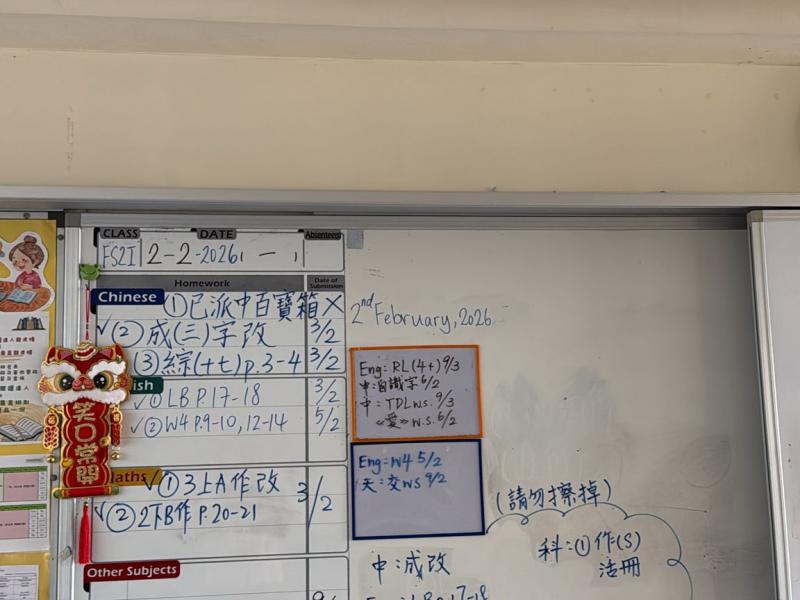 CLASS DATE Absentees
FS2I 2-2-2026, 一,
Homework Date of Submission
Chinese ①已派中百寶箱 X
✓②成(三)字改 3/2
③綜(十七)p.3-4 3/2
✓①LB P.17-18 3/2
✓②W4 P.9-10, 12-14 5/2
Maths ✓①3上A作改 3/2
✓②2下B作 P.20-21
Other Subjects
笑口常開
2nd February, 2026.
Eng: RL(4+) 9/3
中:自識字 6/2
中: TDL ws. 9/3
《愛》w.s. 6/2
Eng: W4 5/2
天:交ws 9/2
(請勿擦掉)
科:①作(S)
活冊
中:成改